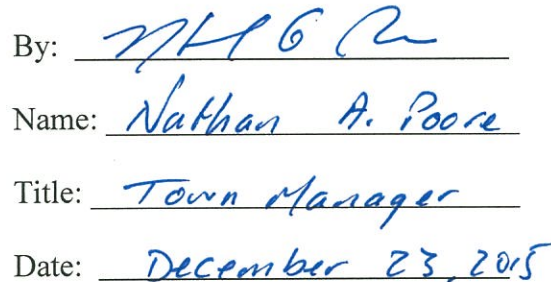 By:
Name: Nathan A. Poore
Title: Town Manager
Date: December 23, 2015